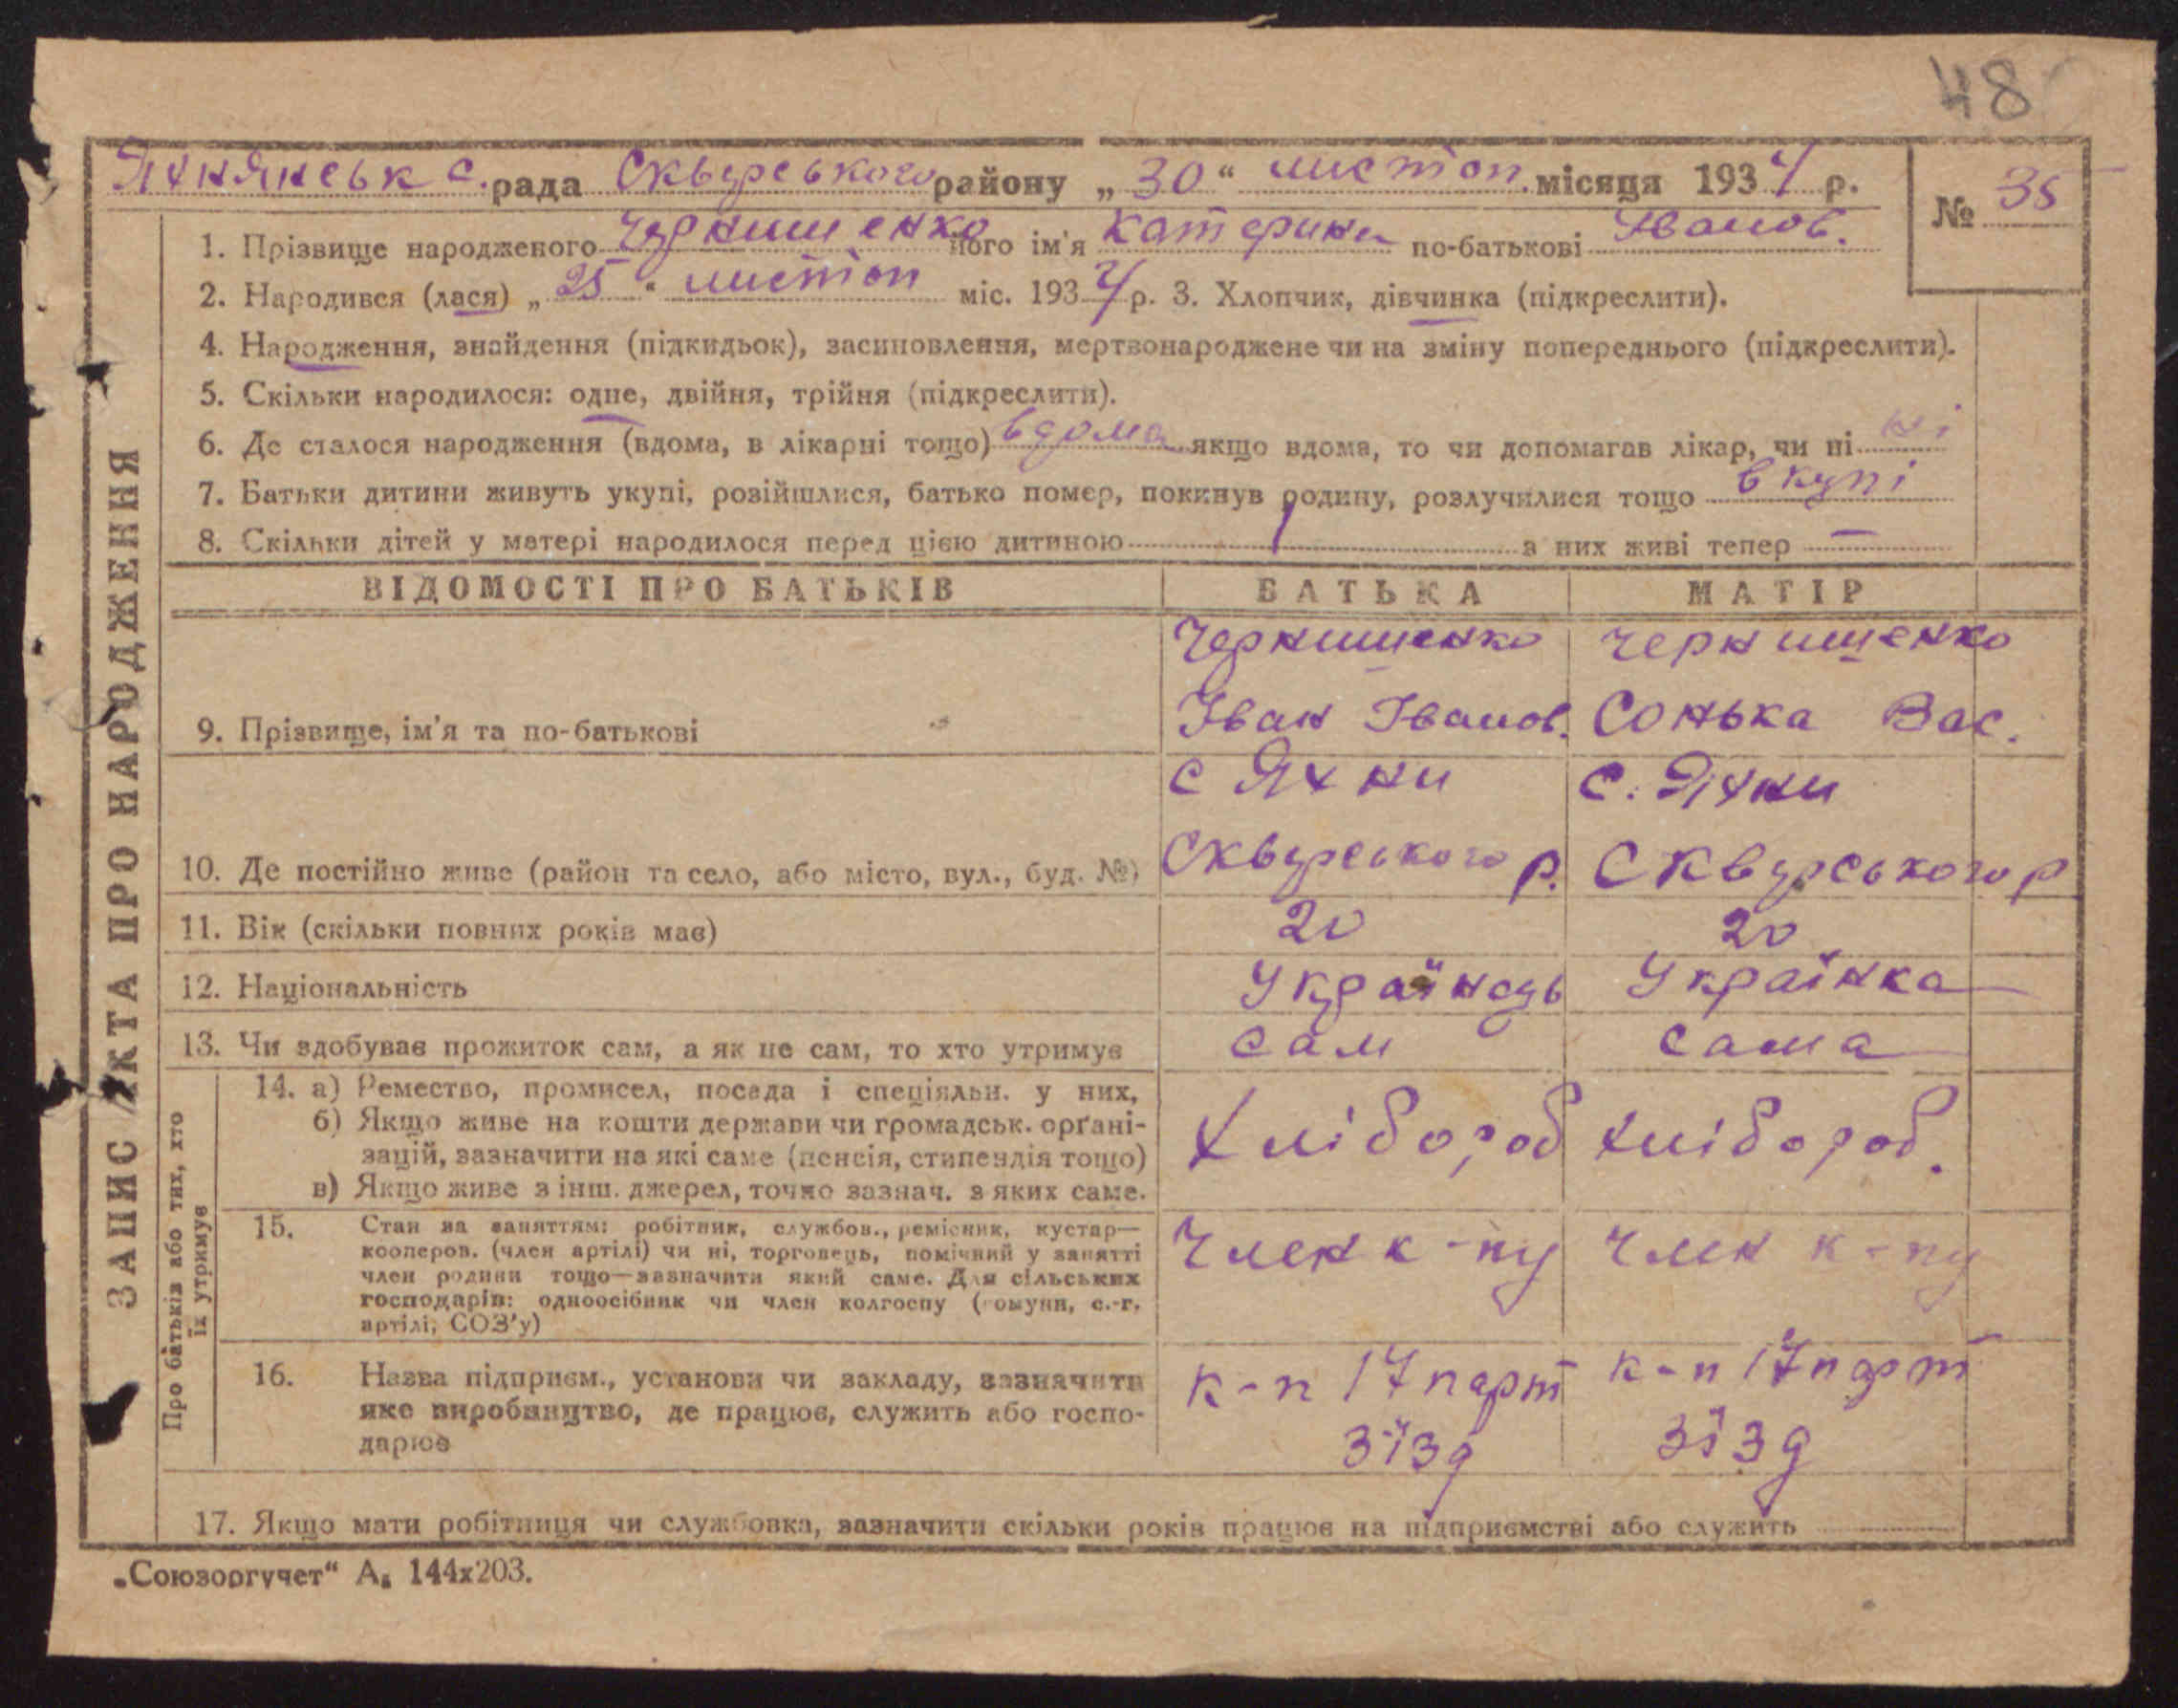 48
Яхнянськ с. рада Сквирського району „30“ листоп. місяця 1934 р.
№ 35
1. Прізвище народженого Чернишенко його ім'я Катерина по-батькові Іванов.
2. Народився (лася) „25“ листоп міс. 1934 р. 3. Хлопчик, дівчинка (підкреслити).
4. Народження, знайдення (підкидьок), засиновлення, мертвонароджене чи на зміну попереднього (підкреслити).
5. Скільки народилося: одне, двійня, трійня (підкреслити).
6. Де сталося народження (вдома, в лікарні тощо) вдома якщо вдома, то чи допомагав лікар, чи ні ні
7. Батьки дитини живуть укупі, розійшлися, батько помер, покинув родину, розлучилися тощо вкупі
8. Скільки дітей у матері народилося перед цією дитиною 1 з них живі тепер —
ЗАПИС АКТА ПРО НАРОДЖЕННЯ
ВІДОМОСТІ ПРО БАТЬКІВ БАТЬКА МАТІР
Чернишенко Чернишенко
9. Прізвище, ім'я та по-батькові Іван Іванов. Сонька Вас.
с Яхни с. Яхни
10. Де постійно живе (район та село, або місто, вул., буд. №) Сквирського р. Сквирського р
11. Вік (скільки повних років має) 20 20
12. Національність Українець Українка
13. Чи здобуває прожиток сам, а як не сам, то хто утримує сам сама
Про батьків або тих, хто їх утримує
14. а) Ремество, промисел, посада і спеціяльн. у них,
б) Якщо живе на кошти держави чи громадськ. орґані-
зацій, зазначити на які саме (пенсія, стипендія тощо) Хлібороб хлібороб.
в) Якщо живе з інш. джерел, точно зазнач. з яких саме.
15. Стан за заняттям: робітник, службов., ремісник, кустар—
кооперов. (член артілі) чи ні, торговець, помічний у занятті Член к-пу член к-пу
член родини тощо—зазначити який саме. Для сільських
господарів: одноосібник чи член колгоспу (комуни, с.-г.
артілі, СОЗ'у)
16. Назва підприєм., установи чи закладу, зазначити к-п 17 парт к-п 17 парт
яке виробництво, де працює, служить або госпо-
дарює зїзд зїзд
17. Якщо мати робітниця чи службовка, зазначити скільки років працює на підприємстві або служить
„Союзоргучет“ А₅ 144х203.